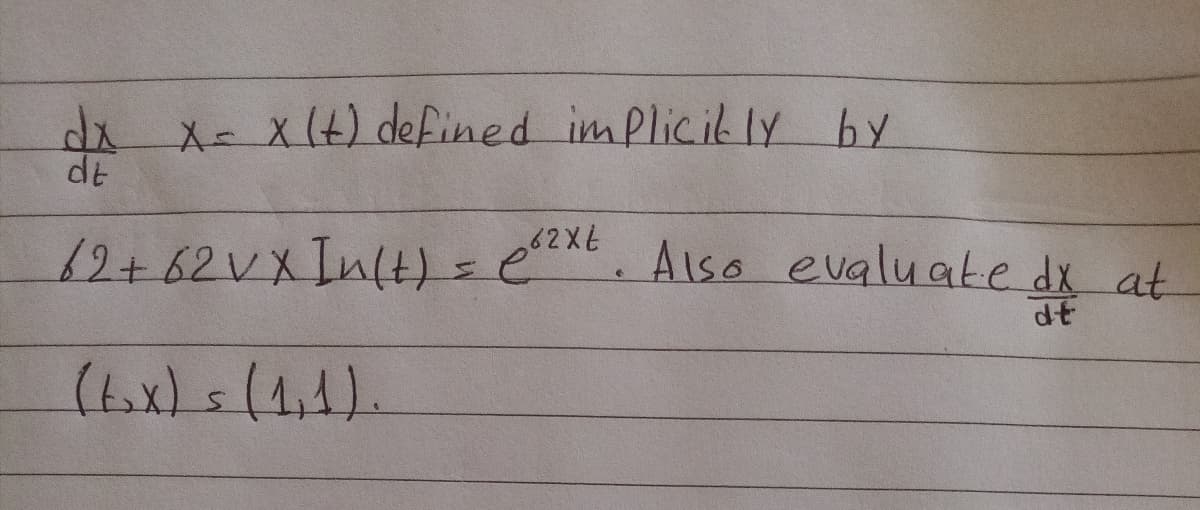 dx/dt x = x(t) defined implicitly by
62+62√x In(t) = e^62xt. Also evaluate dx/dt at
(t,x) = (1,1).